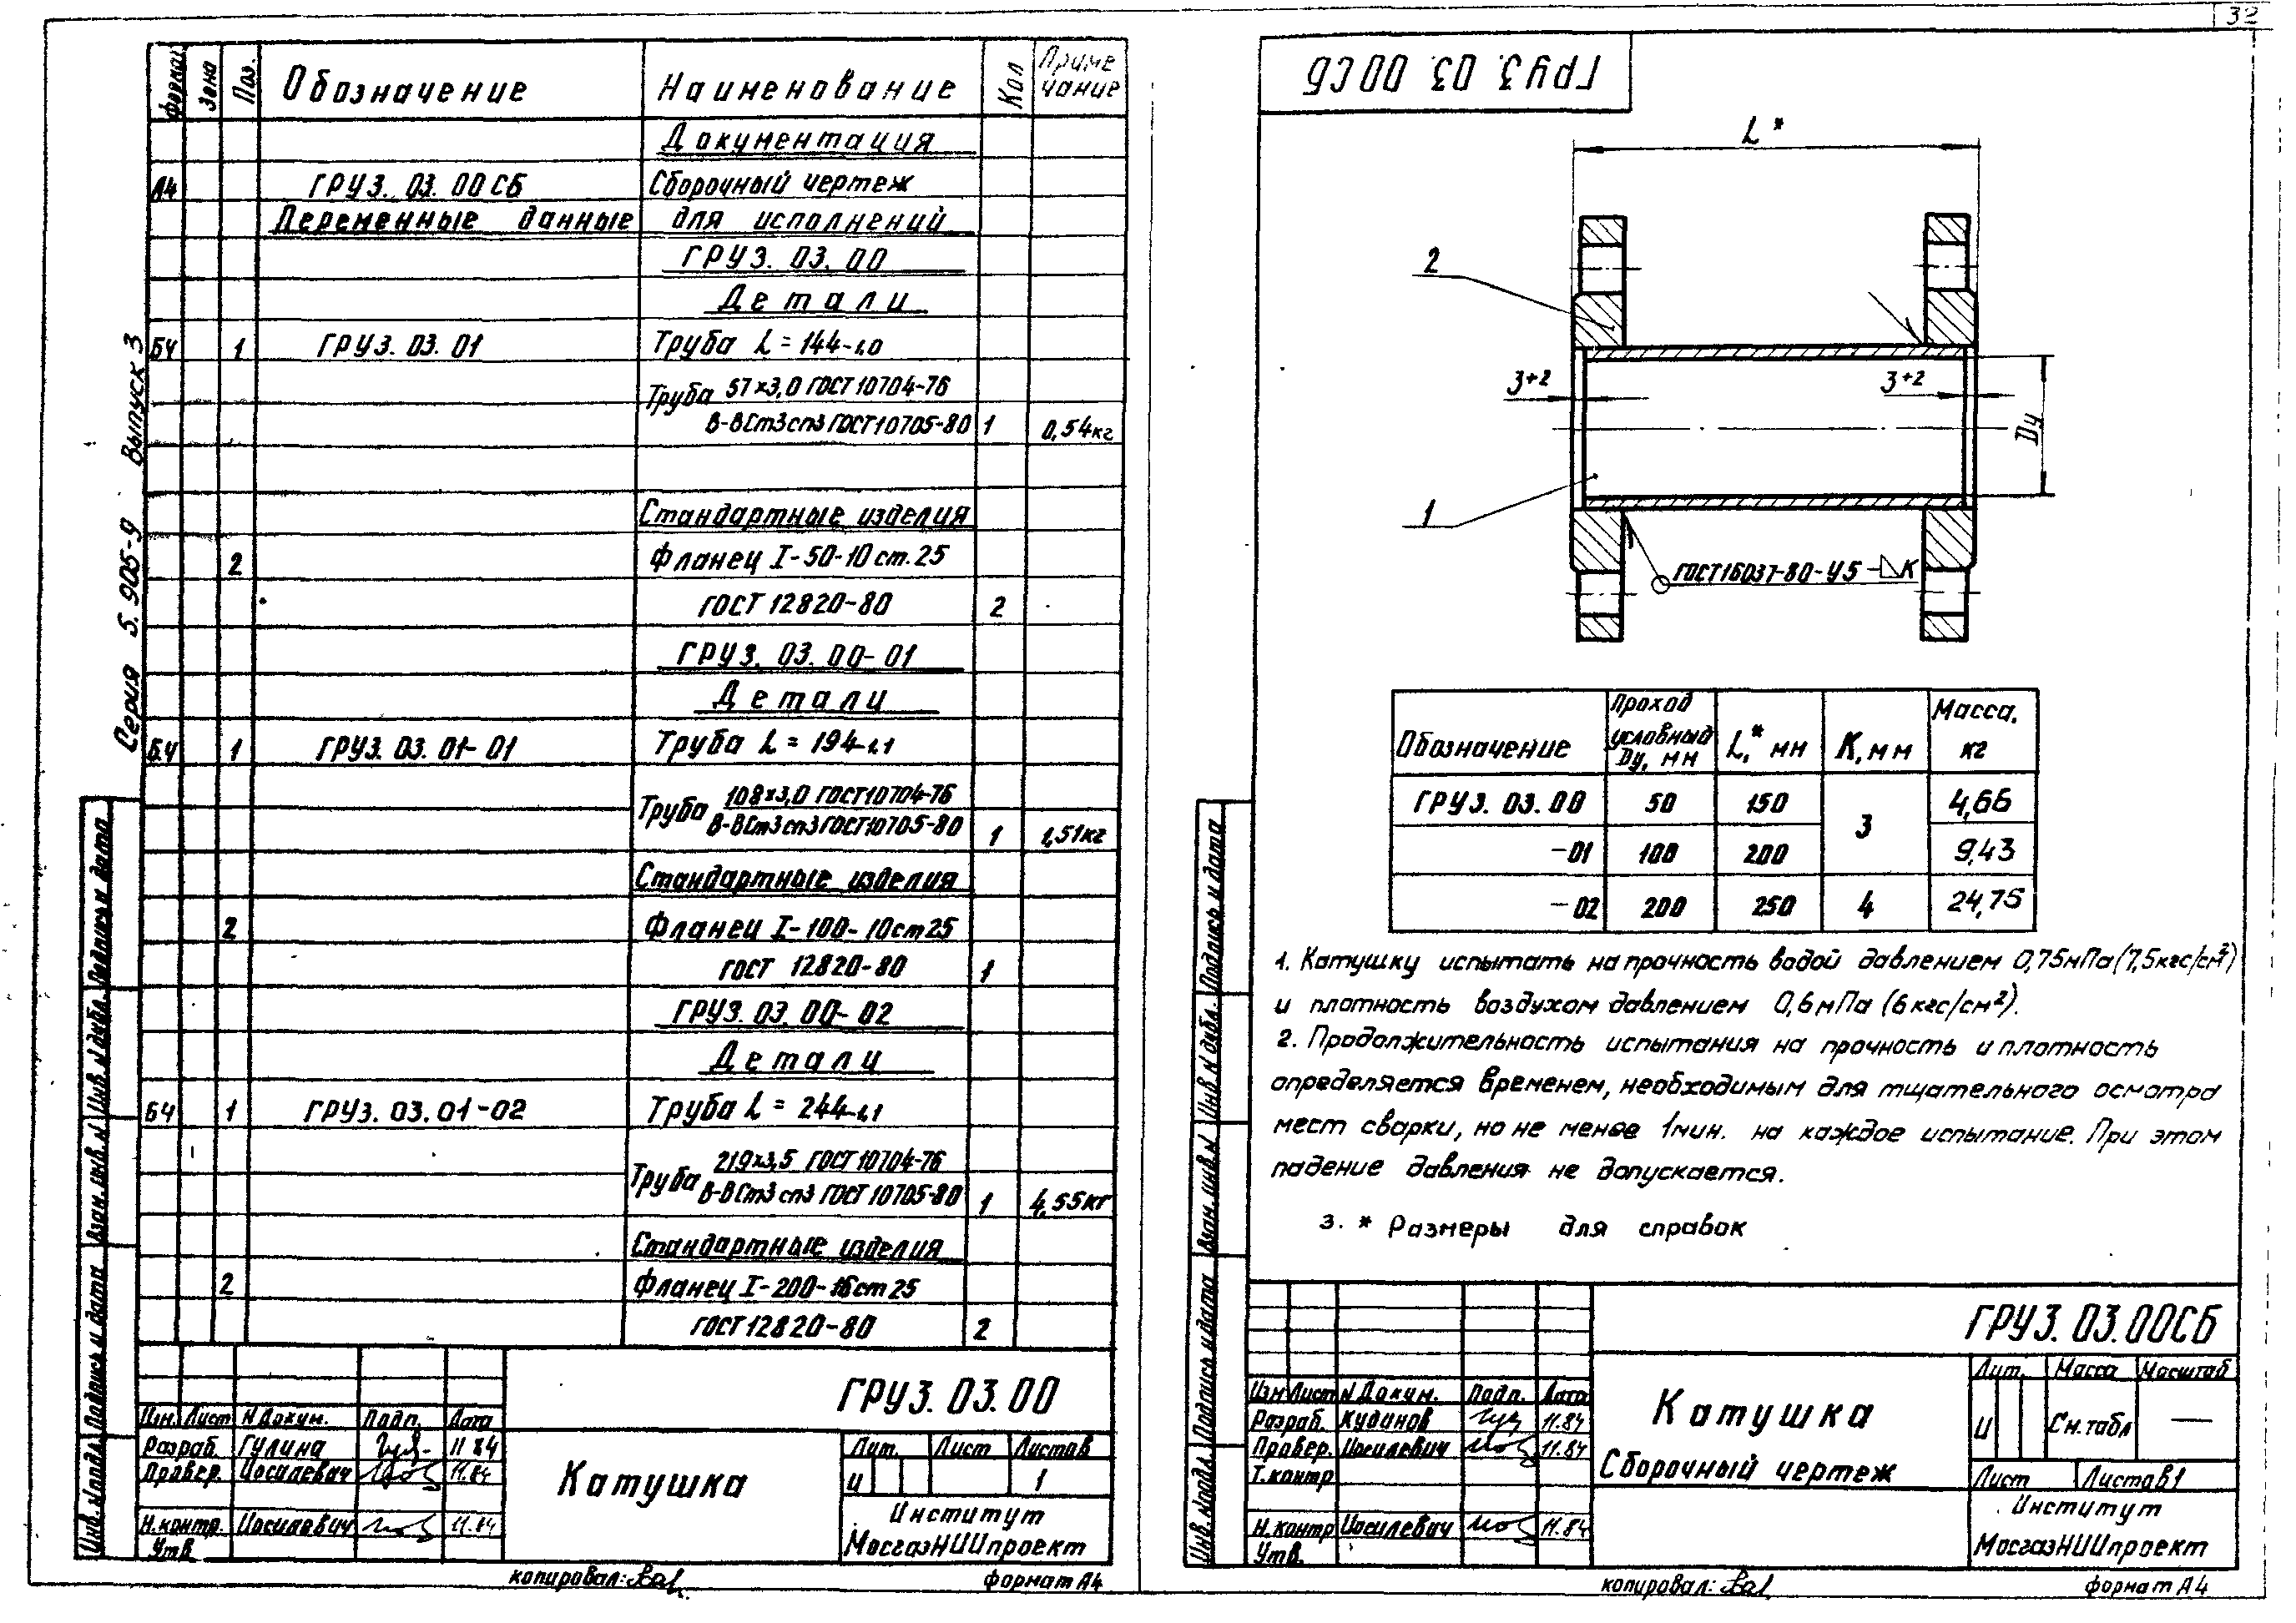 32
Формат Зона Поз. Обозначение Наименование Кол Приме
чание
Документация
А4 ГРУЗ. 03. 00 СБ Сборочный чертеж
Переменные данные для исполнений
ГРУЗ. 03. 00
Детали
БЧ 1 ГРУЗ. 03. 01 Труба L = 144-1,0
Труба 57×3,0 ГОСТ 10704-76
В-ВСт3сп3 ГОСТ 10705-80 1 0,54кг
Стандартные изделия
2 Фланец I-50-10 ст. 25
ГОСТ 12820-80 2
ГРУЗ. 03. 00-01
Детали
БЧ 1 ГРУЗ. 03. 01-01 Труба L = 194-1,1
Труба 108×3,0 ГОСТ 10704-76
В-ВСт3сп3 ГОСТ 10705-80 1 1,51кг
Стандартные изделия
2 Фланец I-100-10 ст 25
ГОСТ 12820-80 1
ГРУЗ. 03. 00-02
Детали
БЧ 1 ГРУЗ. 03. 01-02 Труба L = 244-1,1
Труба 219×3,5 ГОСТ 10704-76
В-ВСт3сп3 ГОСТ 10705-80 1 4,55кг
Стандартные изделия
2 Фланец I-200-16 ст 25
ГОСТ 12820-80 2
Серия 5. 905-9 Выпуск 3
Подпись и дата
Инв. N дубл.
Взам. инв. N
Подпись и дата
Инв. N подл.
ГРУЗ. 03. 00
Изм. Лист N Докум. Подп. Дата
Разраб. Гулина 11 84
Провер. Иосилевич 11.84
Н.контр. Иосилевич 11.84
Утв
Катушка
Лит. Лист Листов
И 1
Институт
МосгазНИИпроект
копировал: формат А4
ГРУЗ. 03. 00 СБ
L*
2
3+2 3+2
Dу
1
ГОСТ 16037-80-У5-◺К
Обозначение Проход
условный
Dу, мм L,* мм К, мм Масса,
кг
ГРУЗ. 03. 00 50 150 3 4,66
-01 100 200 9,43
-02 200 250 4 24,75
1. Катушку испытать на прочность водой давлением 0,75мПа (7,5кгс/см²)
и плотность воздухом давлением 0,6мПа (6 кгс/см²).
2. Продолжительность испытания на прочность и плотность
определяется временем, необходимым для тщательного осмотра
мест сварки, но не менее 1мин. на каждое испытание. При этом
падение давления не допускается.
3. * Размеры для справок
Подпись и дата
Инв. N дубл.
Взам. инв. N
Подпись и дата
Инв. N подл.
ГРУЗ. 03. 00СБ
Изм Лист N Докум. Подп. Дата
Разраб. Кудинов 11.84
Провер. Иосилевич 11.84
Т.контр
Н.контр Иосилевич 11.84
Утв.
Катушка
Сборочный чертеж
Лит. Масса Масштаб
И См. табл —
Лист Листов 1
Институт
МосгазНИИпроект
копировал: формат А4